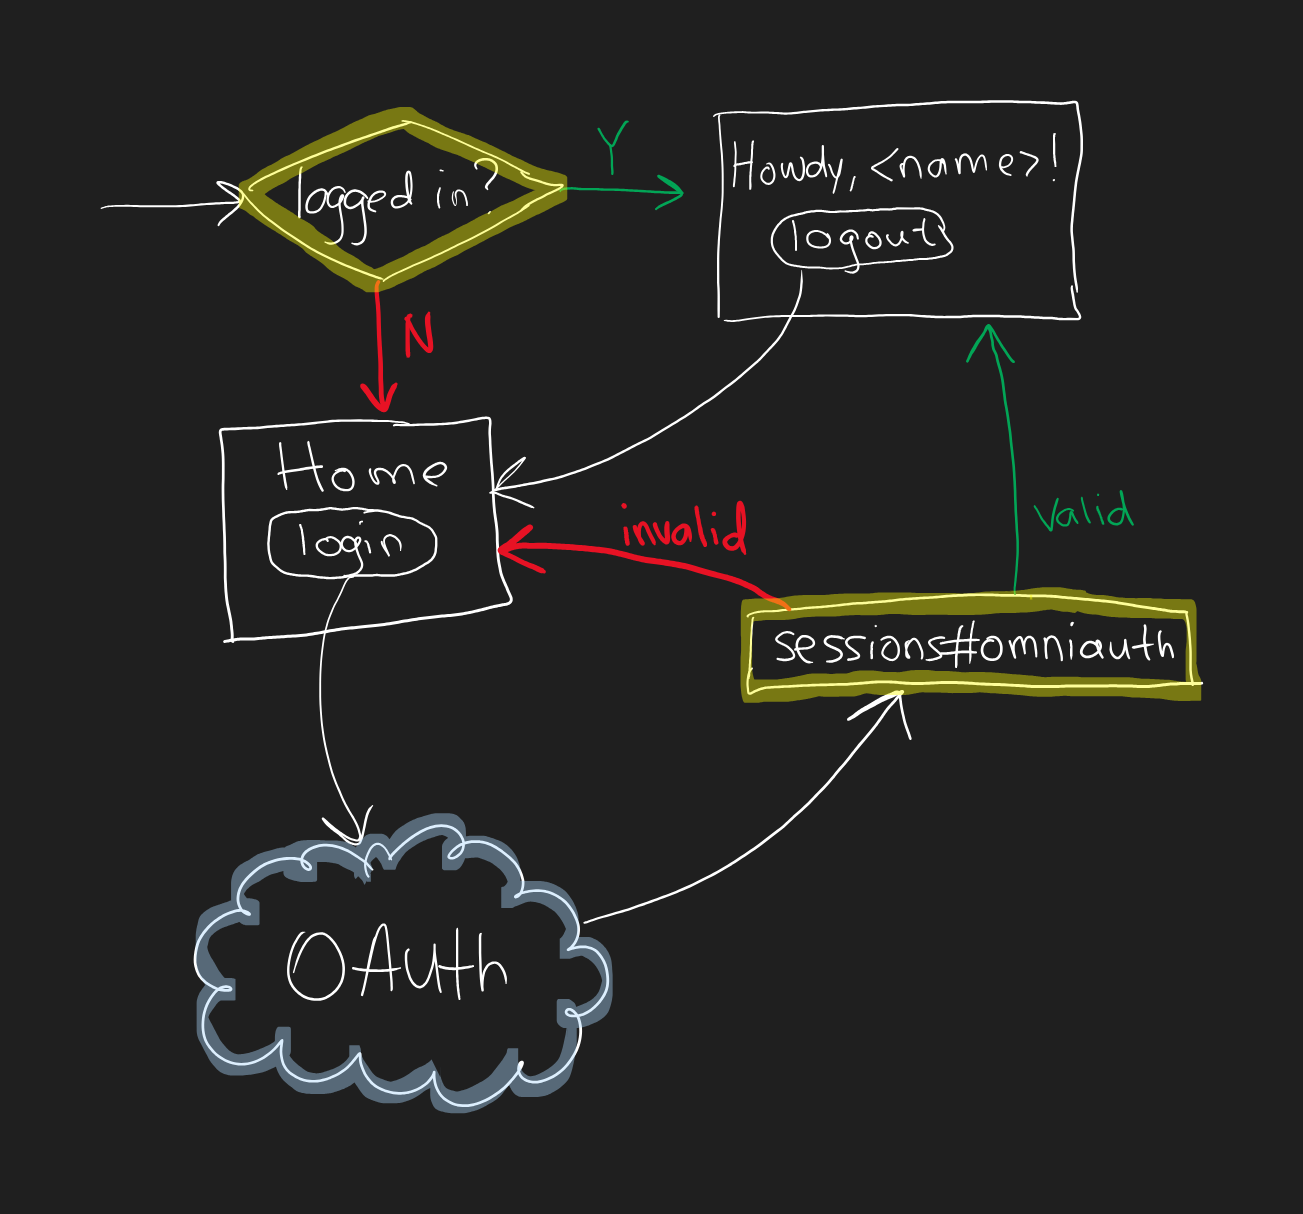 logged in?
Y
Howdy, <name>!
logout
N
Home
login
invalid
valid
sessions#omniauth
OAuth